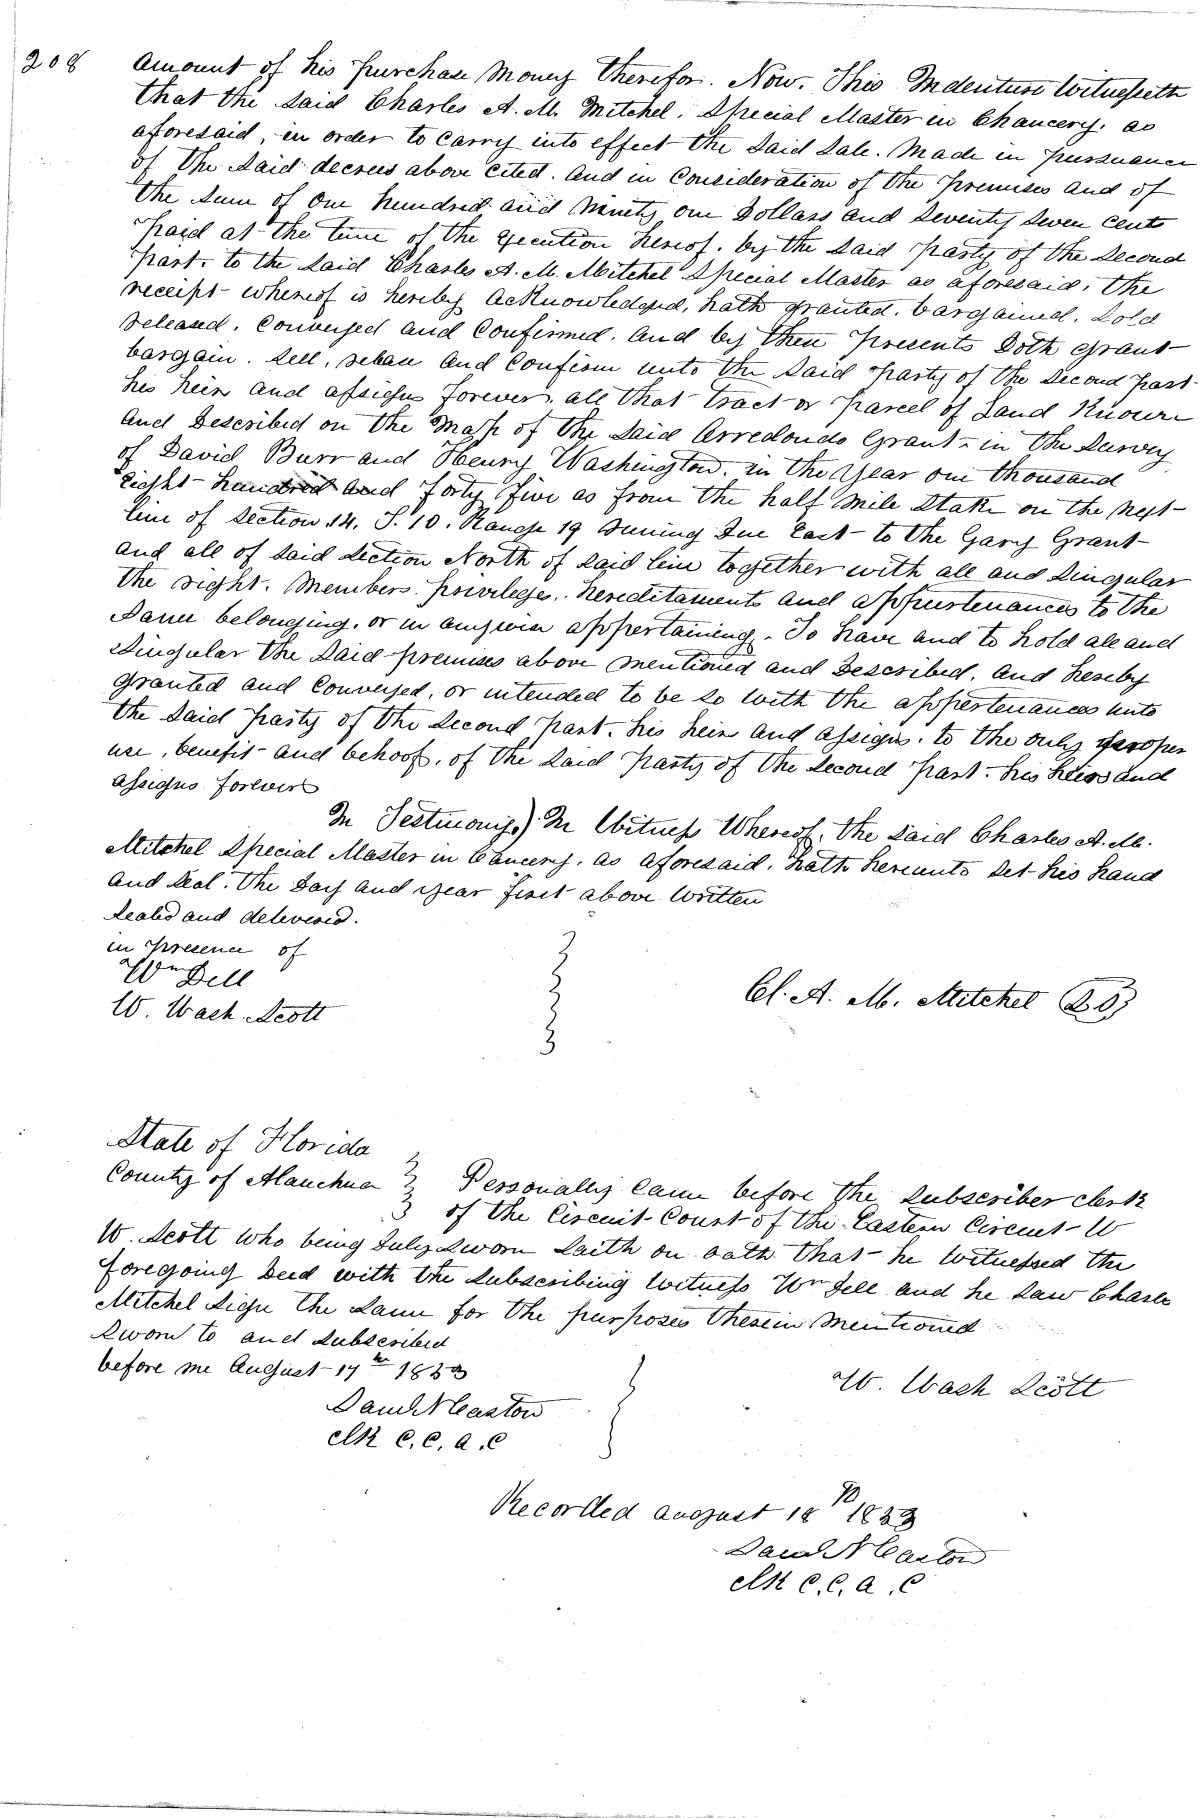 208
Amount of his purchase Money therefor. Now. This Indenture Witnesseth
that the said Charles A. M. Mitchel. Special Master in Chancery. as
aforesaid, in order to carry into effect the said sale. Made in pursuance
of the said decrees above cited. And in consideration of the premises and of
the sum of One hundred and Ninety one Dollars and seventy seven cents
paid at the time of the execution hereof. by the said party of the second
part. to the said Charles A. M. Mitchel Special Master as aforesaid, the
receipt whereof is hereby acknowledged, hath granted. bargained. sold
released. Conveyed and Confirmed. And by these presents Doth grant
bargain. sell, release and Confirm unto the said party of the second part
his heirs and assigns forever. all that tract or parcel of Land Known
and Described on the Map of the said Arredondo Grant in the survey
of David Burr and Henry Washington. in the year one thousand
Eight hundred and forty five as from the half mile stake on the West
line of section 14. T. 10. Range 19 running Due East to the Gary Grant
and all of said section North of said line together with all and singular
the right. Members. privileges. hereditaments and appurtenances to the
same belonging. or in anywise appertaining. To have and to hold all and
singular the said premises above mentioned and Described. and hereby
granted and Conveyed. or intended to be so with the appertenances unto
the said party of the second part. his heirs and assigns. to the only proper
use, benefit and behoof, of the said party of the second part. his heirs and
assigns forever
In Testimony) In Witness Whereof. the said Charles A. M.
Mitchel Special Master in Cancery. as aforesaid. hath hereunto set his hand
and seal. the day and year first above written
Sealed and delivered.
in presence of
Wm Dell
W. Wash. Scott
C. A. M. Mitchel
State of Florida
County of Alauchua Personally came before the subscriber clerk
of the Circuit Court of the Eastern Circuit W
W. Scott who being Duly sworn saith on oath that he witnessed the
foregoing Deed with the subscribing witness Wm Dell and he saw Charles
Mitchel sign the same for the purposes therein mentioned
Sworn to and subscribed
before me August 17th 1853
W. Wash Scott
Clk C. C. A. C
Recorded August 18th 1853
Clk C. C. A. C